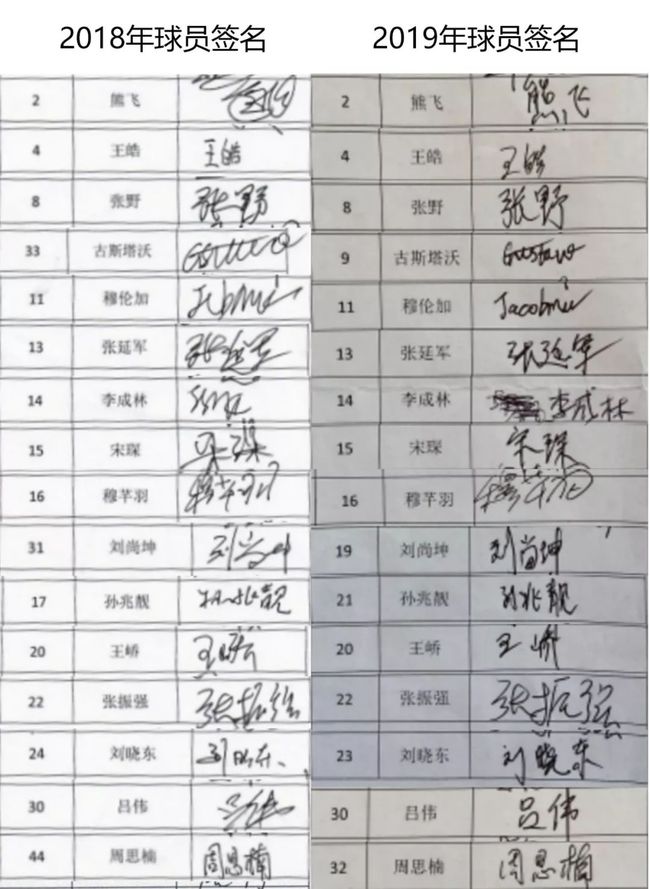 2018年球员签名 2019年球员签名
2 熊飞 2 熊飞 熊飞
4 王皓 王皓 4 王皓 王皓
8 张野 张野 8 张野 张野
33 古斯塔沃 9 古斯塔沃 Gustavo
11 穆伦加 11 穆伦加
13 张延军 张延军 13 张延军 张延军
14 李成林 14 李成林 李成林
15 宋琛 宋琛 15 宋琛 宋琛
16 穆芊羽 16 穆芊羽
31 刘尚坤 刘尚坤 19 刘尚坤 刘尚坤
17 孙兆靓 孙兆靓 21 孙兆靓 孙兆靓
20 王峤 20 王峤 王峤
22 张振强 张振强 22 张振强 张振强
24 刘晓东 刘晓东 23 刘晓东 刘晓东
30 吕伟 30 吕伟 吕伟
44 周思楠 周思楠 32 周思楠 周思楠